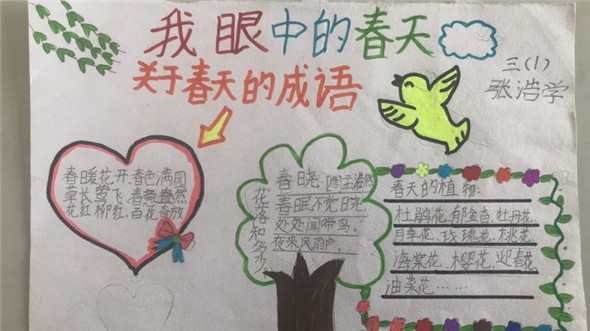 我眼中的春天
关于春天的成语
三(1)
张浩学
春日暖花开、春色满园
草长莺飞、春意盎然
花红柳红、百花齐放
春晓 [唐]孟浩然
春眠不觉晓,
处处闻啼鸟。
夜来风雨声,
花落知多少
春天的植物:
杜鹃花、郁金香、牡丹花、
月季花、玫瑰花、桃花、
海棠花、樱花、迎春花
油菜花……